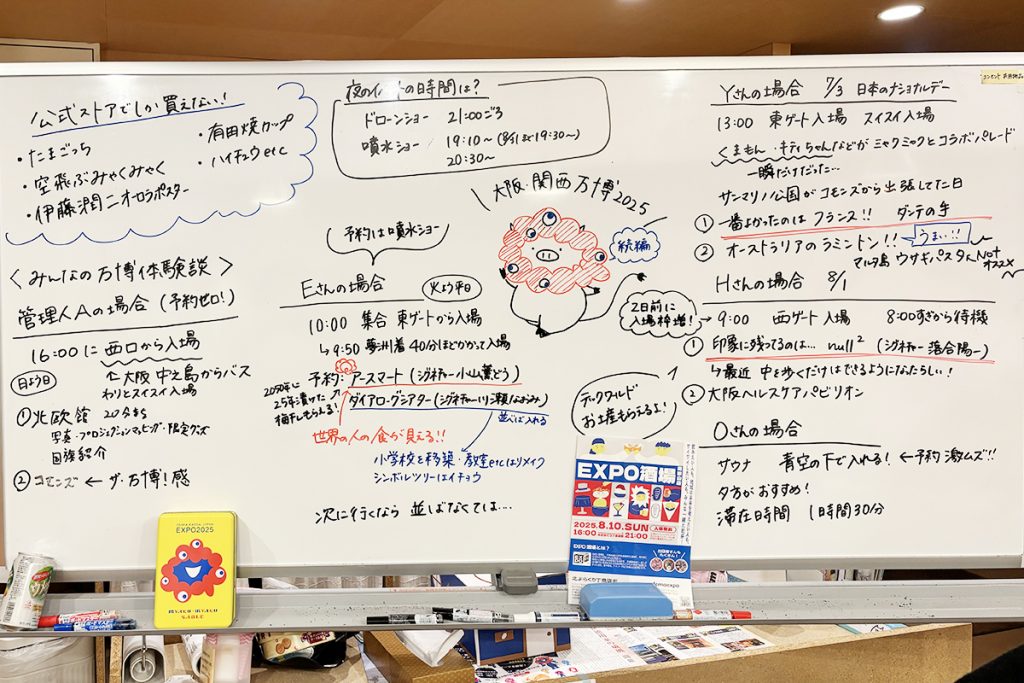 公式ストアでしか買えない!
・たまごっち
・空飛ぶみゃくみゃく
・伊藤潤二オーロラポスター
・有田焼カップ
・ハイチュウetc
夜のイベントの時間は?
ドローンショー 21:00ごろ
噴水ショー 19:10〜(8/31まで19:30〜)
20:30〜
大阪・関西万博2025
続編
<みんなの万博体験談>
管理人Aの場合(予約ゼロ!)
16:00に西口から入場
日よう日
↑大阪 中之島からバス
わりとスイスイ入場
①北欧館 20分まち
写真・プロジェクションマッピング・限定グッズ
国旗紹介
②コモンズ ← ザ・万博!感
予約は噴水ショー
Eさんの場合
火よう平日
10:00 集合 東ゲートから入場
↳9:50 夢洲着 40分ほどかかって入場
予約:アースマート(シグネチャー小山薫どう)
2050年に
25年漬けた
梅干しもらえる!
ダイアローグシアター(シグネチャー河瀬なおみ)
並べば入れる
世界の人の食が見える!!
小学校を移築・教室etcはリメイク
シンボルツリーはイチョウ
次に行くなら 並ばなくては…
Yさんの場合 7/3 日本のナショナルデー
13:00 東ゲート入場 スイスイ入場
くまもん・キティちゃんなどが ミャクミャクとコラボパレード
一瞬だけだった…
サンマリノ公国がコモンズから出張してた日
①一番よかったのは フランス!! ダンテの手
②オーストラリアのラミントン!!
うまい!!
マルタ島 ウサギパスタ Not
オススメ
Hさんの場合 8/1
2日前に
入場枠増!
→9:00 西ゲート入場 8:00すぎから待機
①印象に残ってるのは… null²(シグネチャー落合陽一)
↳最近 中を歩くだけはできるようになたらしい!
②大阪ヘルスケアパビリオン
テックワールド
お土産もらえるよ!
Oさんの場合
サウナ 青空の下で入れる! ←予約激ムズ!!
夕方がおすすめ!
滞在時間 1時間30分
EXPO2025
EXPO酒場
2025.8.10.SUN
16:00
21:00